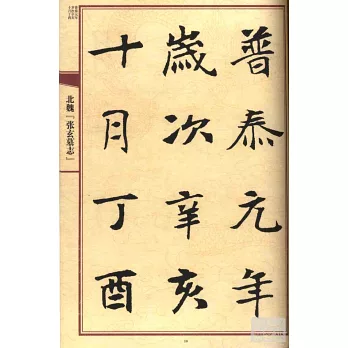 普泰元年
歲次辛亥
十月丁酉
北魏「张玄墓志」